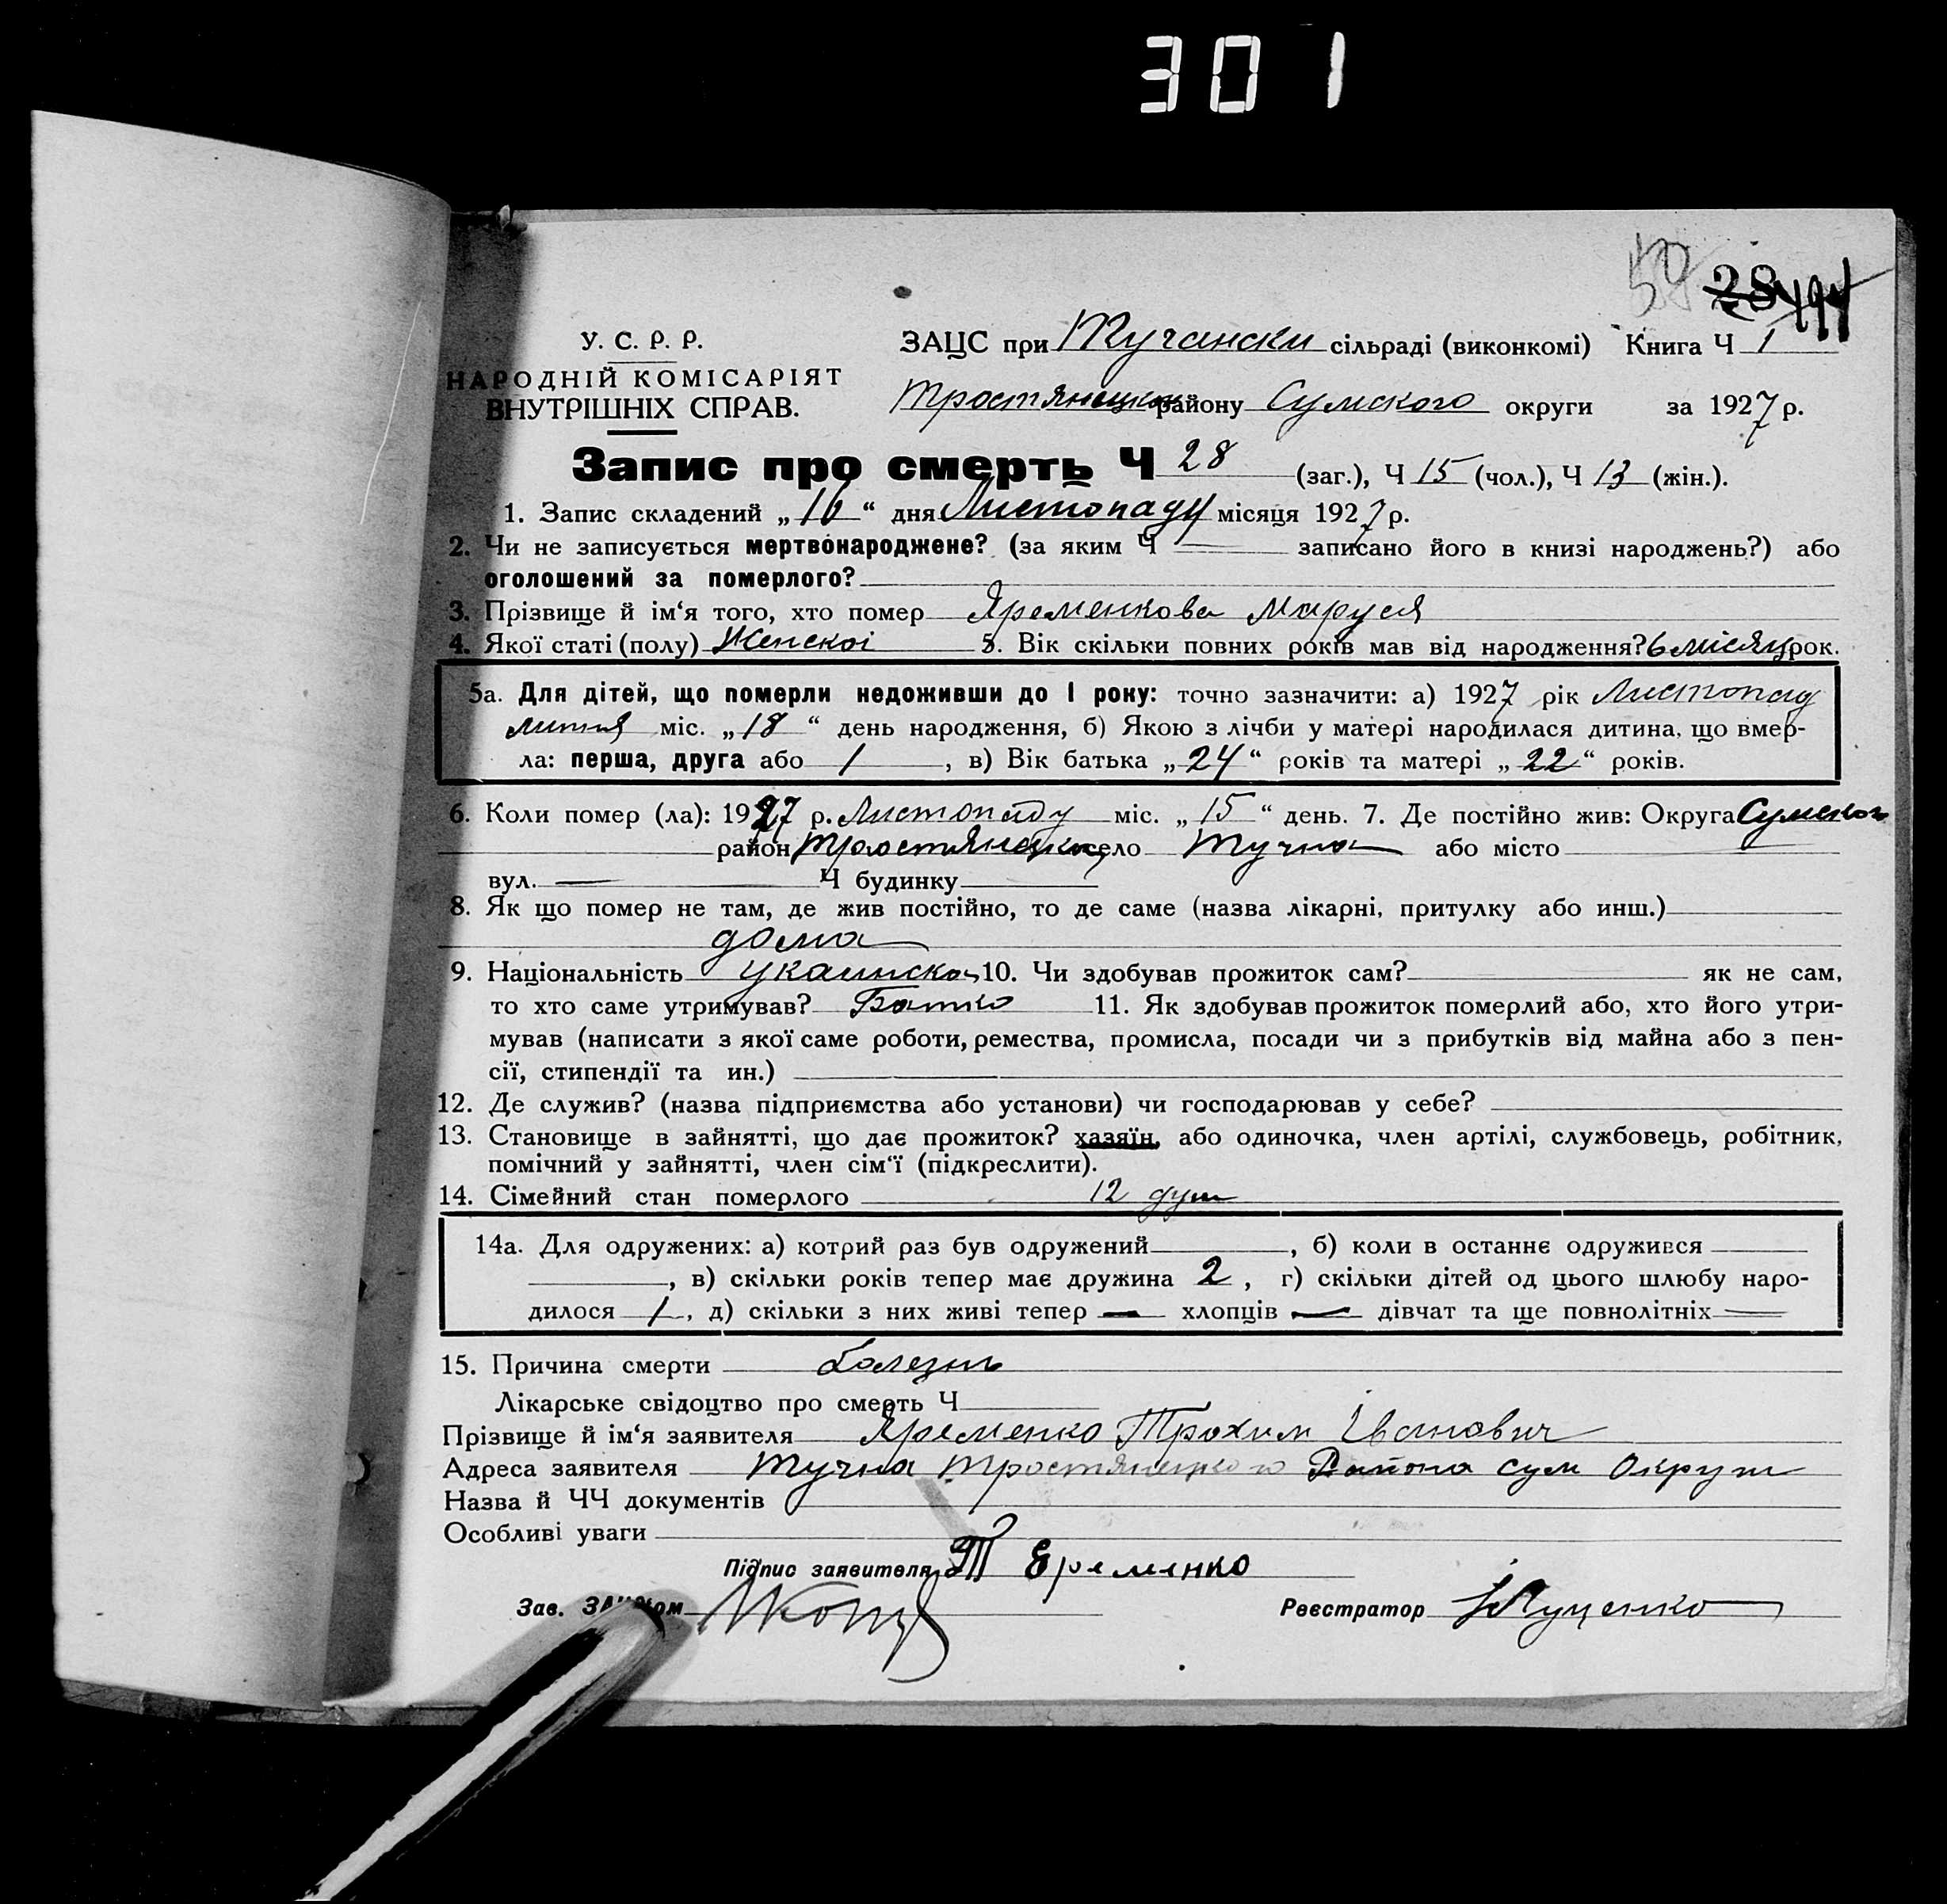 301
50
28
У. С. Р. Р.
НАРОДНІЙ КОМІСАРІЯТ
ВНУТРІШНІХ СПРАВ.
ЗАЦС при Тучански сільраді (виконкомі) Книга Ч 1
Тростянецкого району Сумского округи за 1927 р.
Запис про смерть Ч 28 (заг.), Ч 15 (чол.), Ч 13 (жін.).
1. Запис складений „16“ дня Листопаду місяця 1927 р.
2. Чи не записується мертвонароджене? (за яким Ч записано його в книзі народжень?) або
оголошений за померлого?
3. Прізвище й ім‘я того, хто помер Яременкова Маруся
4. Якої статі (полу) Женскоі 5. Вік скільки повних років мав від народження? 6 місяц рок.
5а. Для дітей, що померли недоживши до 1 року: точно зазначити: а) 1927 рік Листопад
липня міс. „18“ день народження, б) Якою з лічби у матері народилася дитина, що вмер-
ла: перша, друга або 1, в) Вік батька „24“ років та матері „22“ років.
6. Коли помер (ла): 1927 р. Листопаду міс. „15“ день. 7. Де постійно жив: Округа Сумского
район Тростянецкого село Тучна або місто
вул. — Ч будинку
8. Як що помер не там, де жив постійно, то де саме (назва лікарні, притулку або инш.)
дома
9. Національність украинска 10. Чи здобував прожиток сам? як не сам,
то хто саме утримував? Батко 11. Як здобував прожиток померлий або, хто його утри-
мував (написати з якої саме роботи, ремества, промисла, посади чи з прибутків від майна або з пен-
сії, стипендії та ин.)
12. Де служив? (назва підприємства або установи) чи господарював у себе?
13. Становище в зайнятті, що дає прожиток? хазяїн, або одиночка, член артілі, службовець, робітник,
помічний у зайнятті, член сім‘ї (підкреслити).
14. Сімейний стан померлого 12 душ
14а. Для одружених: а) котрий раз був одружений, б) коли в останнє одружився
, в) скільки років тепер має дружина 2, г) скільки дітей од цього шлюбу наро-
дилося 1, д) скільки з них живі тепер — хлопців — дівчат та ще повнолітніх
15. Причина смерти болезнь
Лікарське свідоцтво про смерть Ч
Прізвище й ім‘я заявителя Яременко Трохим Іванович
Адреса заявителя Тучна Тростянецкого Района Сум Округи
Назва й ЧЧ документів
Особливі уваги
Підпис заявителя Т Еременко
Зав. ЗАЦСом
Реєстратор Луценко